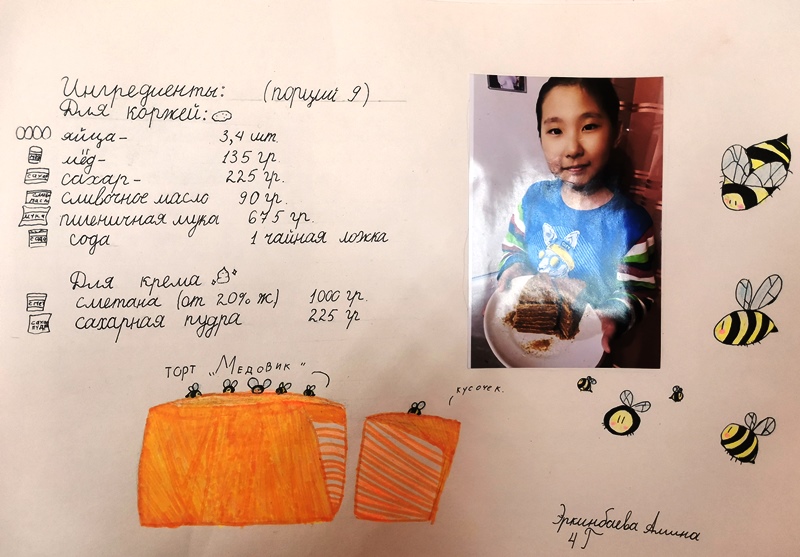 Ингредиенты: (порций 9)
Для коржей:
яйца- 3,4 шт.
мёд- 135 гр.
сахар- 225 гр.
сливочное масло 90 гр.
пшеничная мука 675 гр.
сода 1 чайная ложка
Для крема „ “
сметана (от 20% ж) 1000 гр.
сахарная пудра 225 гр
торт „Медовик"
кусочек.
Эркинбаева Амина
4 Г